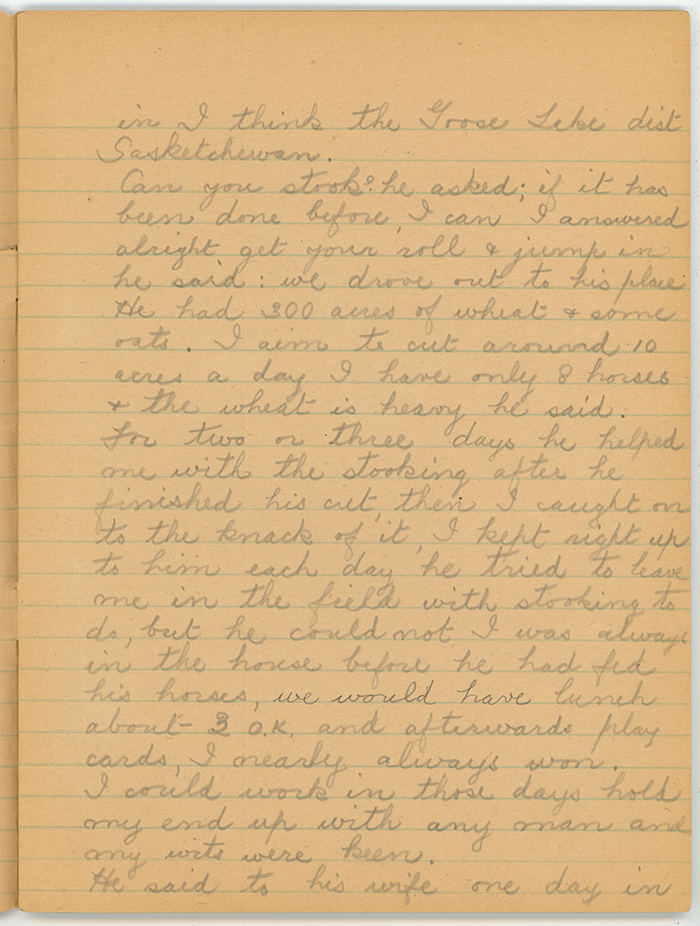 in I think the Goose Leke dist
Sasketchewan.
Can you stook? he asked; if it has
been done before, I can I answered
alright get your roll & jump in
he said: we drove out to his place
He had 300 acres of wheat & some
oats. I aim to cut around 10
acres a day I have only 8 horses
& the wheat is heavy he said.
For two or three days he helped
me with the stooking after he
finished his cut, then I caught on
to the knack of it, I kept right up
to him each day he tried to leave
me in the field with stooking to
do, but he could not I was always
in the house before he had fed
his horses, we would have lunch
about 3 O.K. and afterwards play
cards, I nearly always won.
I could work in those days hold
my end up with any man and
my wits were keen.
He said to his wife one day in